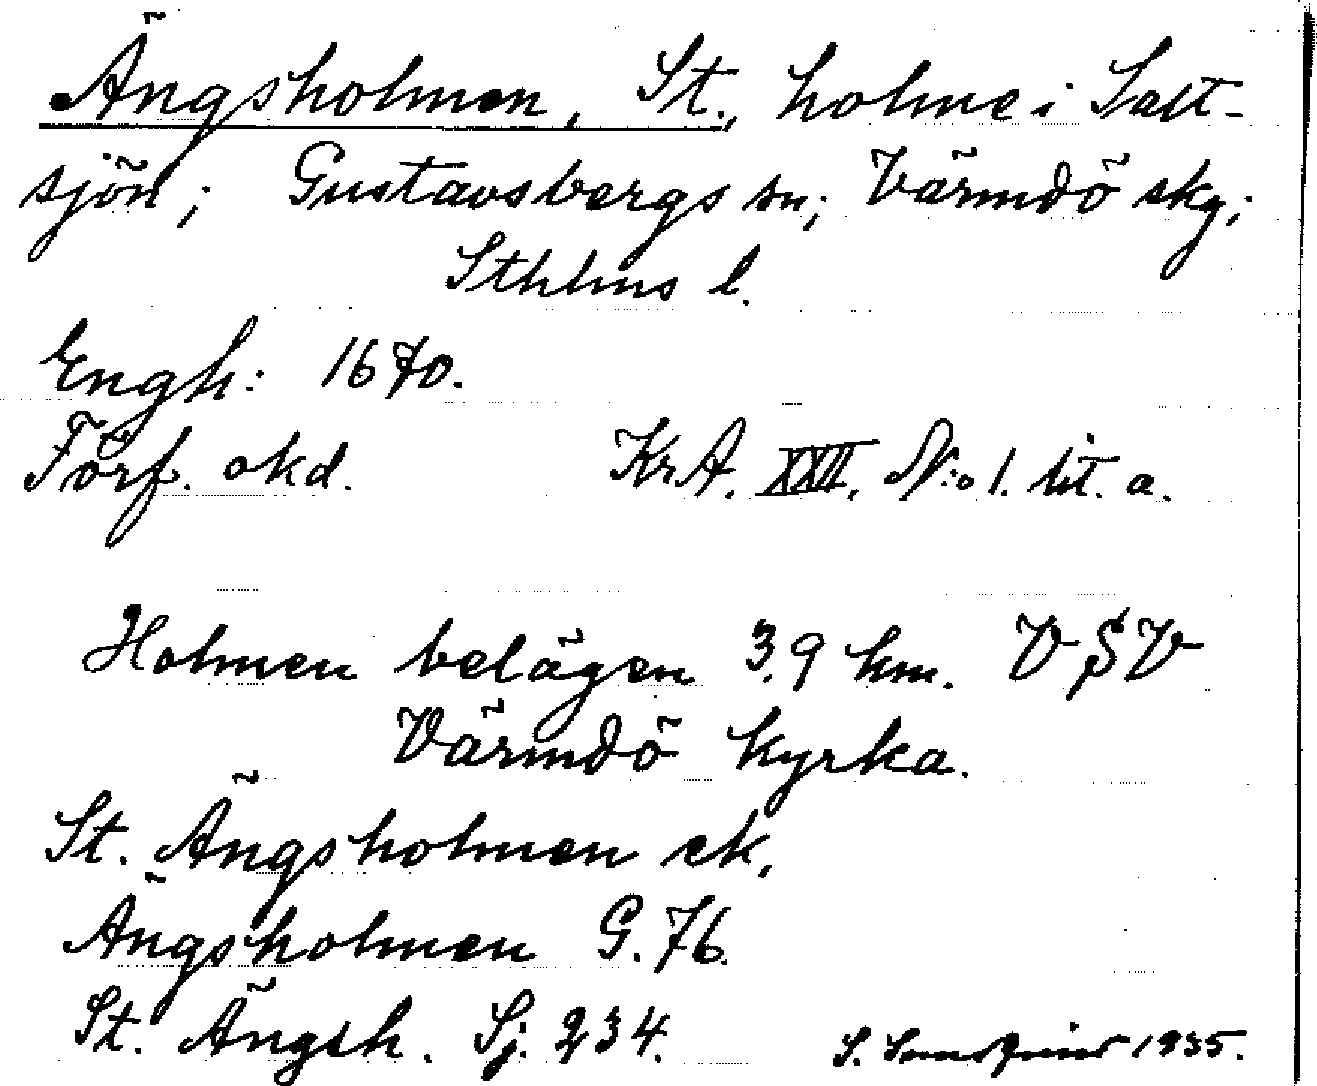 Ängsholmen, St., holme i Salt-
sjön; Gustavsbergs sn; Värmdö skg;
Sthlms l.
Engh: 1670.
Förf. okd. Kr.A. XXII. N:o 1. lit. a.
Holmen belägen 3.9 km. VSV
Värmdö kyrka.
St. Ängsholmen ek.
Ängsholmen G. 76.
St. Ängsh. Sj. 234.
S. 1935.